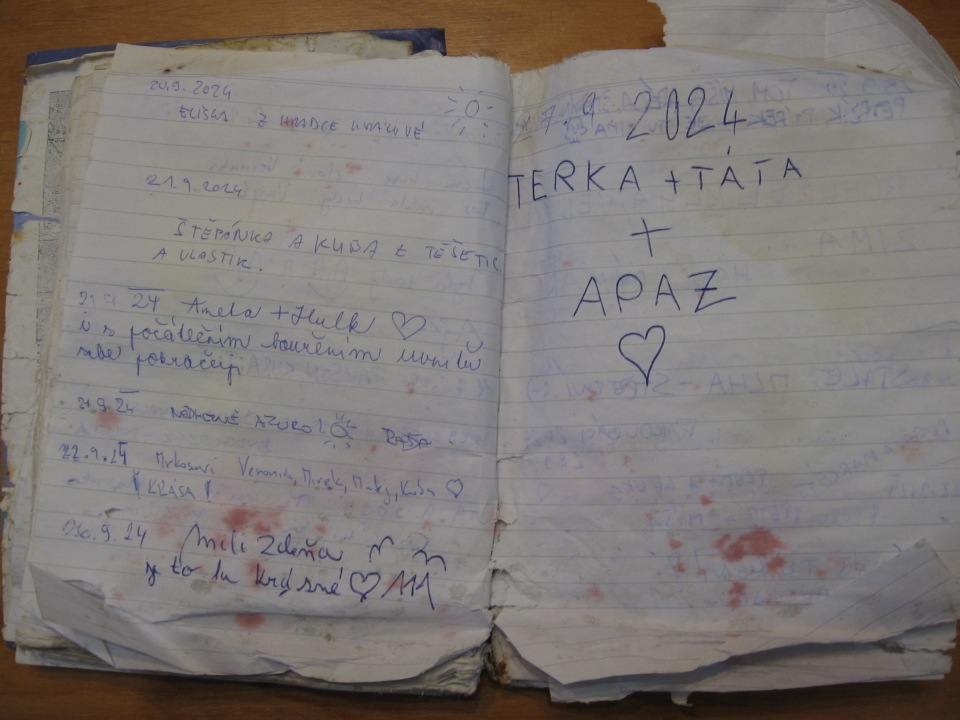 20.9.2024
ELIŠKA Z HRADCE KRÁLOVÉ
21.9.2024
ŠTĚPÁNKA A KUBA Z TĚŠETIC
A VLASTIK.
21.9 24 Aneta + Hulk ♡
i s počátečním bouřením
sebe pokračuji
21.9.24 NÁDHERNÉ AZURO!
22.9.24 Veronika, Mirek, Kuba ♡
! KRÁSA !
26.9.24 Meli Zdeňa
je to tu krásné ♡
27.9 2024
TERKA + TÁTA
+
APAZ
♡